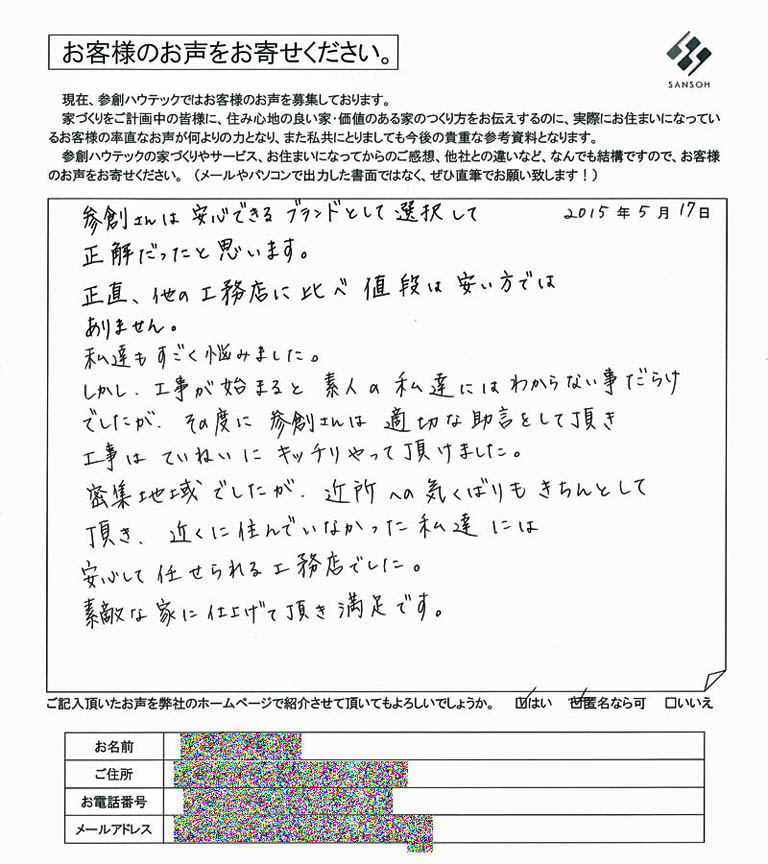 お客様のお声をお寄せください。
SANSOH
現在、参創ハウテックではお客様のお声を募集しております。
家づくりをご計画中の皆様に、住み心地の良い家・価値のある家のつくり方をお伝えするのに、実際にお住まいになってい
るお客様の率直なお声が何よりの力となり、また私共にとりましても今後の貴重な参考資料となります。
参創ハウテックの家づくりやサービス、お住まいになってからのご感想、他社との違いなど、なんでも結構ですので、お客様
のお声をお寄せください。（メールやパソコンで出力した書面ではなく、ぜひ直筆でお願い致します！）
2015年5月17日
参創さんは安心できるブランドとして選択して
正解だったと思います。
正直、他の工務店に比べ値段は安い方では
ありません。
私達もすごく悩みました。
しかし、工事が始まると素人の私達にはわからない事だらけ
でしたが、その度に参創さんは適切な助言をして頂き
工事はていねいにキッチリやって頂けました。
密集地域でしたが、近所への気くばりもきちんとして
頂き、近くに住んでいなかった私達には
安心して任せられる工務店でした。
素敵な家に仕上げて頂き満足です。
ご記入頂いたお声を弊社のホームページで紹介させて頂いてもよろしいでしょうか。 ☑はい ☑匿名なら可 □いいえ
お名前
ご住所
お電話番号
メールアドレス